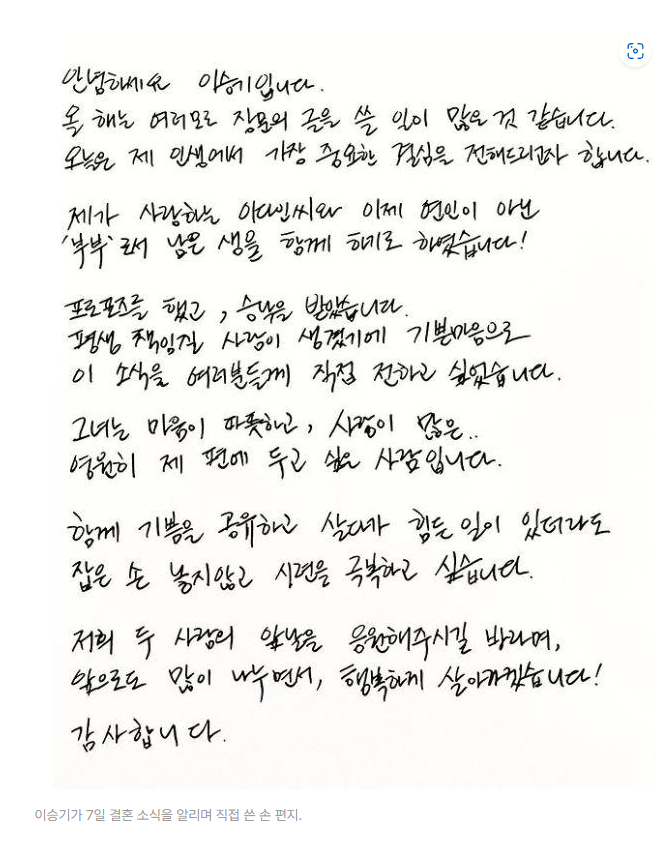 안녕하세요 이승기입니다.
올 해는 여러모로 장문의 글을 쓸 일이 많은 것 같습니다.
오늘은 제 인생에서 가장 중요한 결심을 전해드리고자 합니다.
제가 사랑하는 이다인씨와 이제 연인이 아닌
'부부'로서 남은 생을 함께 하기로 하였습니다!
프로포즈를 했고, 승낙을 받았습니다.
평생 책임질 사람이 생겼기에 기쁜마음으로
이 소식을 여러분들께 직접 전하고 싶었습니다.
그녀는 마음이 따뜻하고, 사랑이 많은..
영원히 제 편에 두고 싶은 사람입니다.
함께 기쁨을 공유하고 살다가 힘든 일이 있더라도
잡은 손 놓지않고 시련을 극복하고 싶습니다.
저희 두 사람의 앞날을 응원해주시길 바라며,
앞으로도 많이 나누면서, 행복하게 살아가겠습니다!
감사합니다.
이승기가 7일 결혼 소식을 알리며 직접 쓴 손 편지.